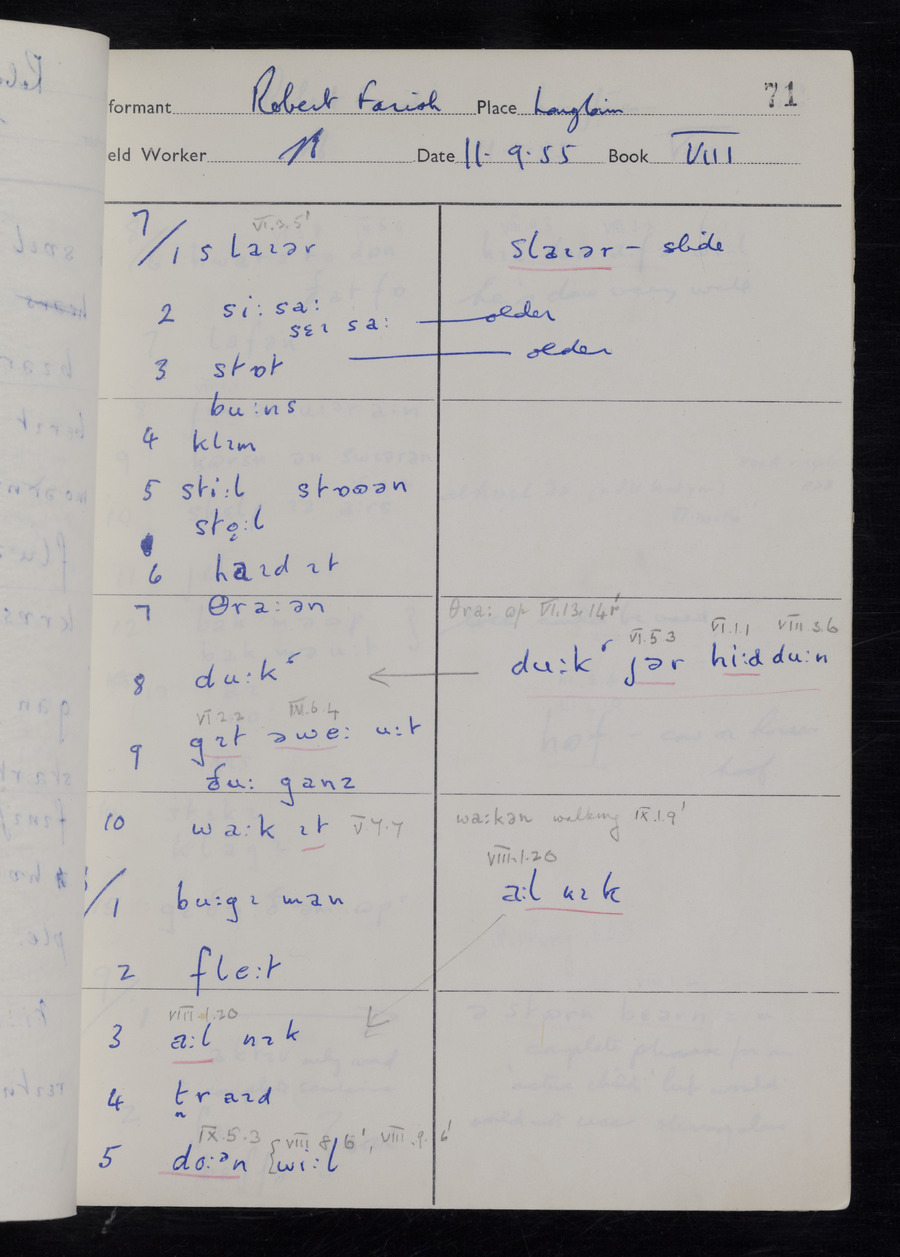 71
formant Robert Farish Place Longtown
eld Worker Date 11. 9. 55 Book VIII
VI.3.5'
7/1 slaɪər
slaɪər – slide
2 si:sa:
sɛɪsa: older
3 stɒt older
bu:ns
4 klɪm
5 sti:l stɒʊən
sto̜:l
6 haɪd ɪt
7 θra:ən
θra: op VI.13.14'
8 du:k ʳ
du:k ʳ jər hi:d du:n
VI.5.3 VI.1.1 VIII.3.6
VI.2.2 IV.6.4
9 gɪt əwe: u:t
ðu: ganz
10 wa:k ɪt V.7.7
wa:kən walking IX.1.9'
/1 bu:gɪ man
VIII.1.20
a:l nɪk
2 fle:t
VIII.1.20
3 a:l nɪk
4 t̪raɪd
IX.5.3 VIII.8.6', VIII.9.6'
5 do:ᵊn {wi:l